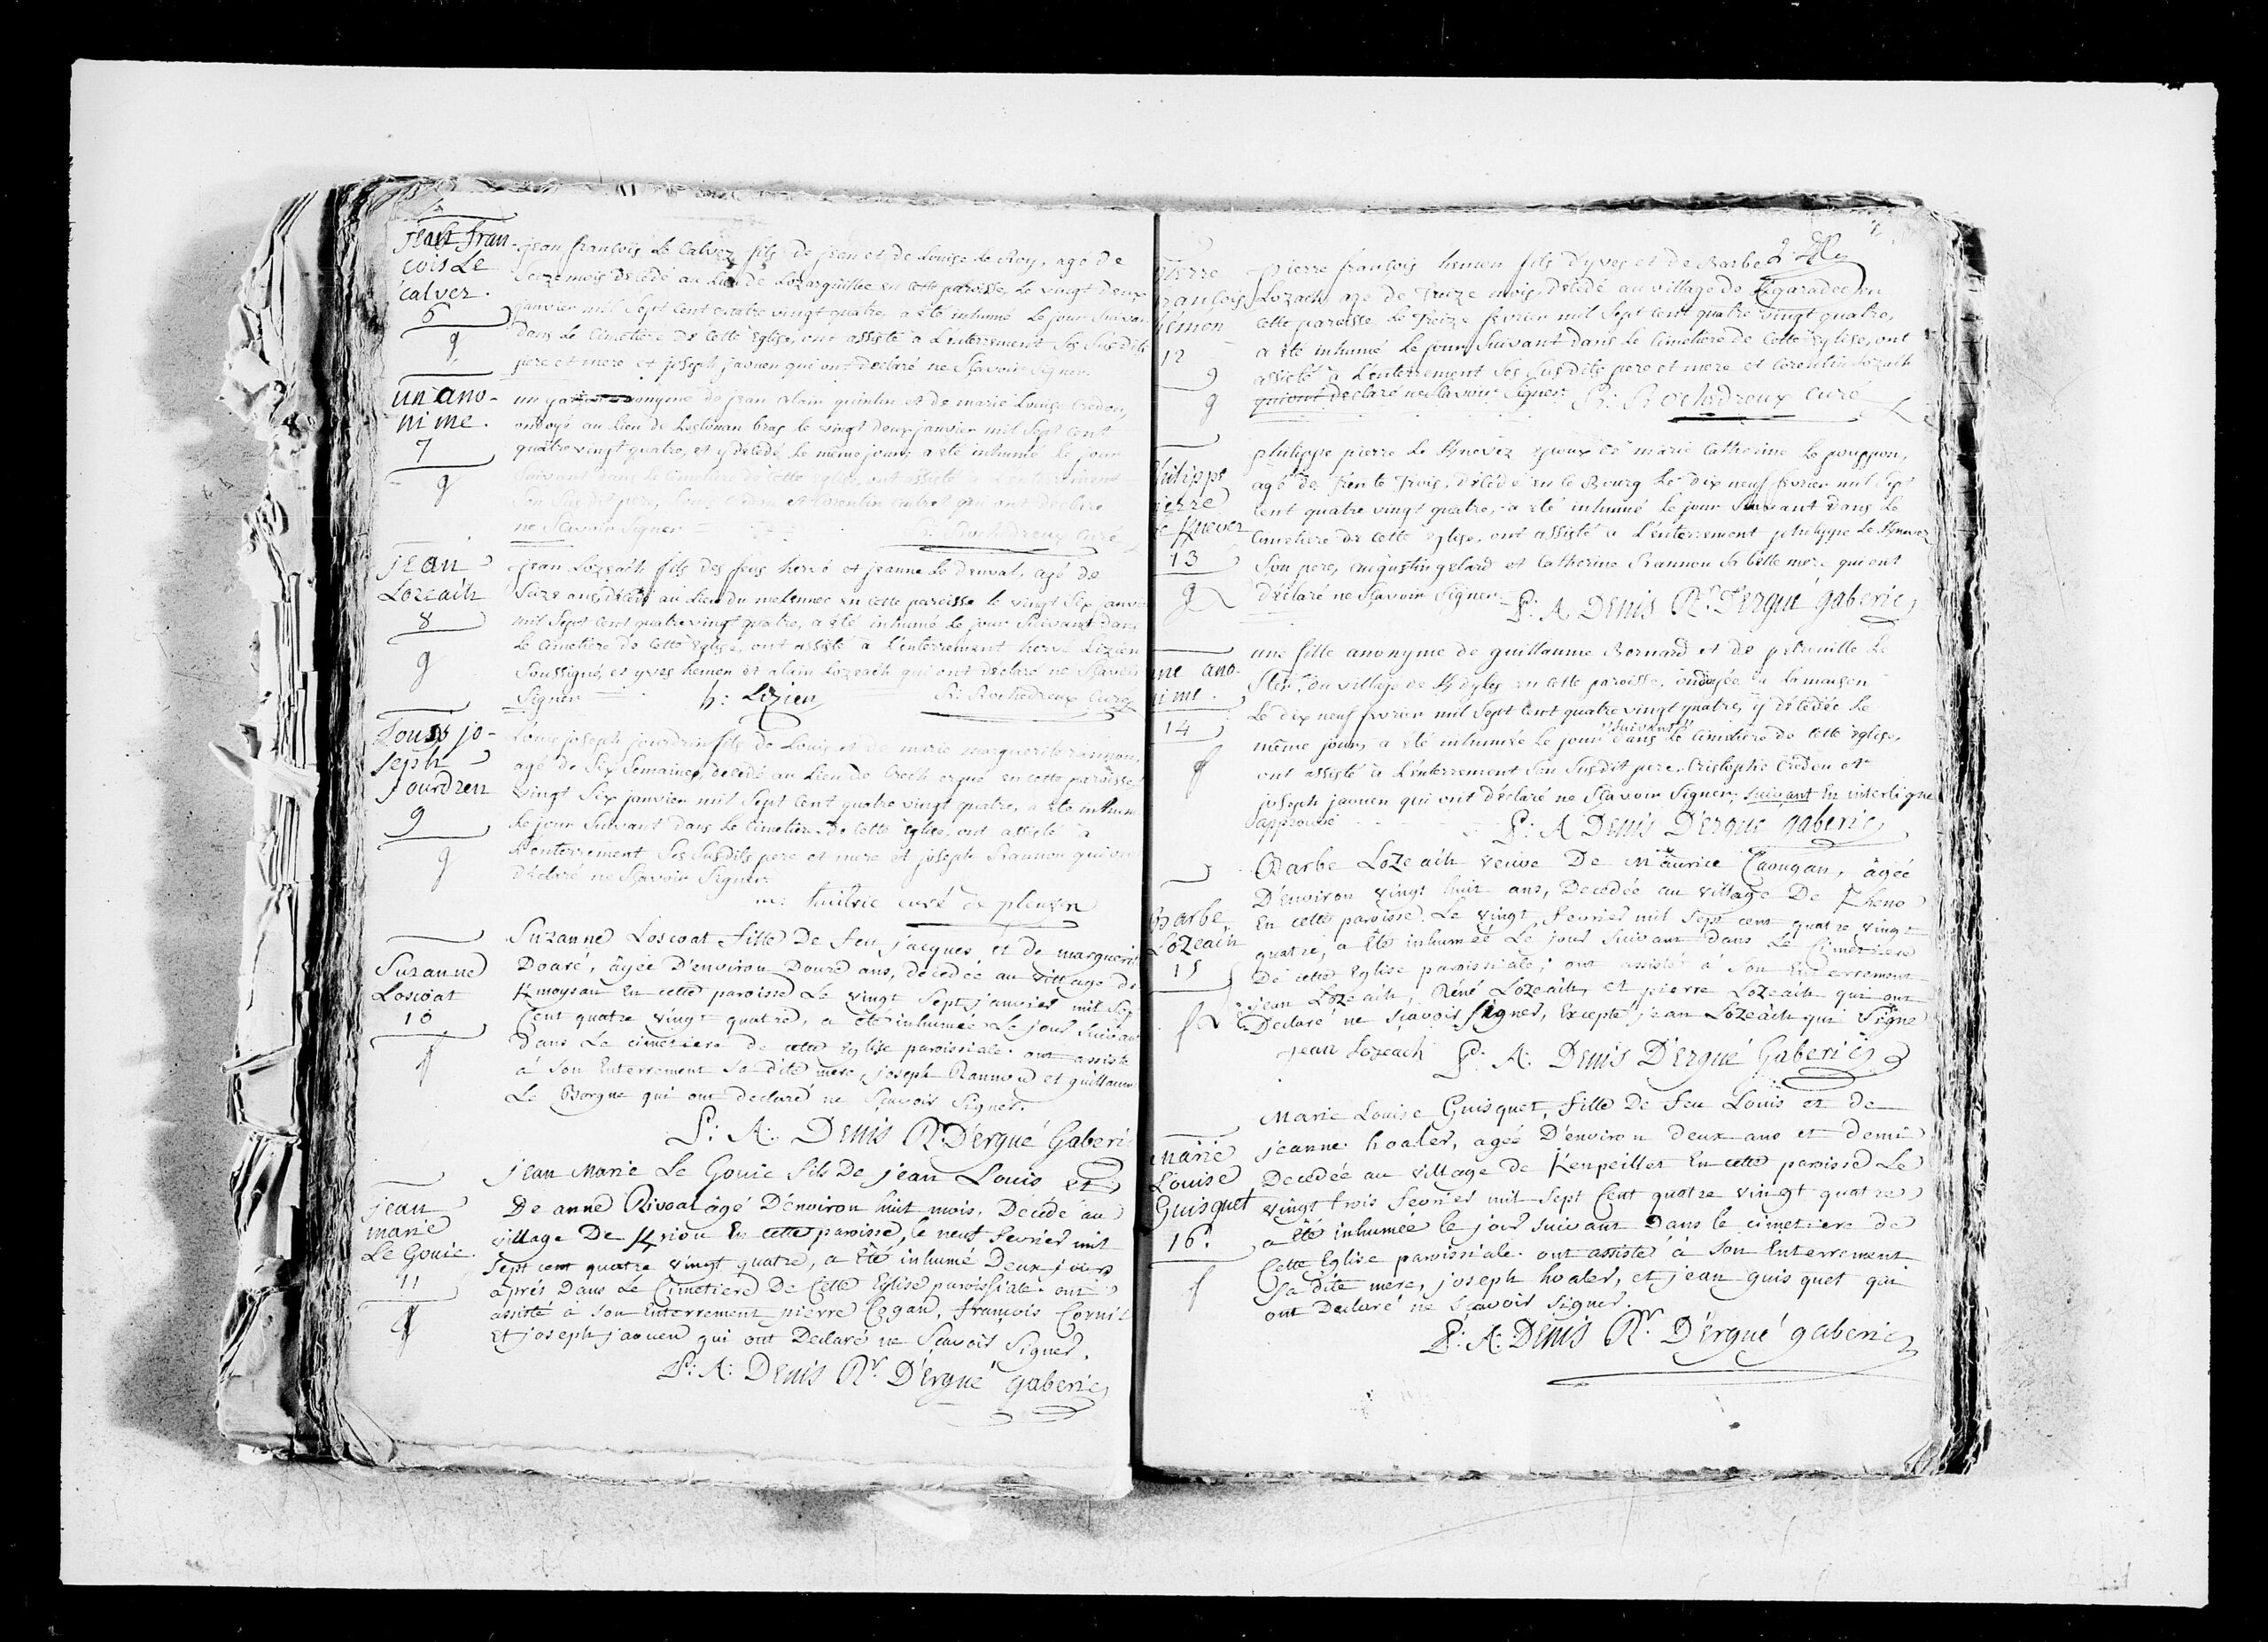 jean fran-
cois Le
calvez.
6
g
jean françois Le Calvez fils de jean et de Louise Le Roy, agé de
Seize mois décédé au Lieu de Lezarguillec en cette paroisse, Le vingt deux
janvier mil Sept cent quatre vingt quatre, a été inhumé Le jour Suivan
dans Le Cimetiere de Cette église, ont assisté a L'enterrement Ses Susdits
pere et mere et joseph jaouen qui ont declaré ne Sçavoir Signer.
un ano-
nime.
7
g
un anonyme de jean alain quintin et de marie Louise Credou,
ondoyé au Lieu de Lestonan bras le vingt deux janvier mil Sept Cent
quatre vingt quatre, et y décédé Le même jour, a été inhumé Le jour
Suivant dans Le Cimetiere de Cette église, ont assisté a L'enterrement
Son Susdit pere, et Corentin qui ont déclaré
ne Sçavoir Signer R: Rochedreux Curé
jean
Lozeach
8
g
jean Lozeach fils des feus hervé et jeanne Le Denval, agé de
Seize ans, décédé au Lieu du melennec en cette paroisse le vingt Six janvi
mil Sept Cent quatre vingt quatre, a été inhumé Le jour Suivant dans
Le Cimetiere de Cette église, ont assisté a L'enterrement hervé Lizien
Soussigné, et yves hemon et alain Lozeach qui ont déclaré ne Sçavoir
Signer h: Lizien R: Rochedreux Curé
Louis jo-
seph
Jourdren
9
g
Louis joseph jourdrin fils de Louis et de marie marguerite rannou,
agé de Six Semaines, décédé au Lieu de Crech ergué en cette paroisse,
vingt Six janvier mil Sept Cent quatre vingt quatre, a été inhum
Le jour Suivant dans Le Cimetiere de Cette église, ont assisté a
L'enterrement Ses Susdits pere et mere et joseph Rannou qui on
déclaré ne Sçavoir Signer.
curé de pleuven
Suzanne
Loscoat
10
f
Suzanne Loscoat fille De feu jacques, et de marguerit
Doaré, âgée D'environ Douze ans, décédée au village de
Kmoysan En cette paroisse Le vingt Sept janvier mil Sep
Cent quatre vingt quatre, a été inhumée Le jour Suivan
Dans Le cimetiere de cette Eglise paroissiale. ont assisté
à Son Enterrement Sa dite mere, joseph Rannou et guillaume
Le Borgne qui ont declaré ne Sçavoir Signer.
P: A: Denis Rr. D'ergué Gaberi
jean
marie
Le Gouic.
11
g
jean Marie Le Gouic fils De jean Louis et
De anne Rivoal âgé D'environ huit mois, Décédé au
village De Kriou En cette paroisse, le neuf Fevrier mil
Sept cent quatre vingt quatre, a été inhumé Deux jours
après Dans Le Cimetiere De Cette Eglise paroissiale. ont
assisté à Son Enterrement pierre Cogan, françois Cornic
Et joseph jaouen qui ont Declaré ne Sçavoir Signer.
P: A: Denis Rr. D'ergué gaberic
2
pierre
françois
hémon
12
g
g
Pierre françois hemon fils d'yves et de Barbe
Lozach, agé de Treize mois, décédé au village de Kgaradec en
cette paroisse Le Treize février mil Sept Cent quatre vingt quatre,
a été inhumé Le jour Suivant dans Le Cimetiere de Cette église, ont
assisté a L'enterrement Ses Susdits pere et mere et Corentin Lozach
qui ont declaré ne Sçavoir Signer R: Rochedreux Curé
Philippe
pierre
Le Knevez
13
g
philippe pierre Le Knevez époux de marie Catherine Le pouppon,
agé de Trente Trois, décédé en le Bourg Le dix neuf février mil Sept
Cent quatre vingt quatre, a été inhumé le jour Suivant dans Le
Cimetiere de Cette église, ont assisté a L'enterrement philippe Le Knevez
Son pere, augustin gelard et Catherine Rannou Sa belle mere qui ont
déclaré ne Sçavoir Signer. P: A Denis Rr. D'ergué gaberic
une ano-
nime.
14
f
une fille anonyme de guillaume Bernard et de petronille Le
Ster, du village de Kdyles en Cette paroisse, ondoyée a la maison
Le dix neuf fevrier mil Sept Cent quatre vingt quatre, y décédée Le
même jour, a été inhumée Le jour "suivant" dans Le Cimetiere de Cette église,
ont assisté a L'enterrement Son Susdit pere, Cristophe Credou et
joseph jaouen qui ont déclaré ne Sçavoir Signer; suivant En interligne
approuvé P: A Denis D'ergué gaberic
Barbe
Lozeach
15
f
Barbe Lozeach veuve De Maurice Caougan, âgée
D'environ vingt huit ans, Decédée au village De Kheno
En cette paroisse. Le vingt Fevrier mil Sept cent quatre vingt
quatre, a été inhumée Le jour Suivant dans Le Cimetiere
De cette Eglise paroissiale; ont assisté à Son Enterrement
jean Lozeach, Réné Lozeach, et pierre Lozeach qui ont
Declaré ne Sçavoir Signer, Excepté jean Lozeach qui Signe
jean Lozeach P: A: Denis D'ergué Gaberic
Marie
Louise
Guisquet
16.
f
Marie Louise Guisquet, fille De feu Louis et de
jeanne hoaler, agée D'environ deux ans et demi
Decédée au village de Kenpeillet En cette paroisse Le
vingt trois Fevrier mil Sept Cent quatre vingt quatre
a été inhumée le jour suivant Dans le cimetiere de
Cette Eglise paroissiale. ont assisté à Son Enterrement
Sa dite mere, joseph hoaler, et jean guisquet qui
ont Declaré ne Sçavoir Signer.
P: A: Denis Rr. D'ergué gaberic